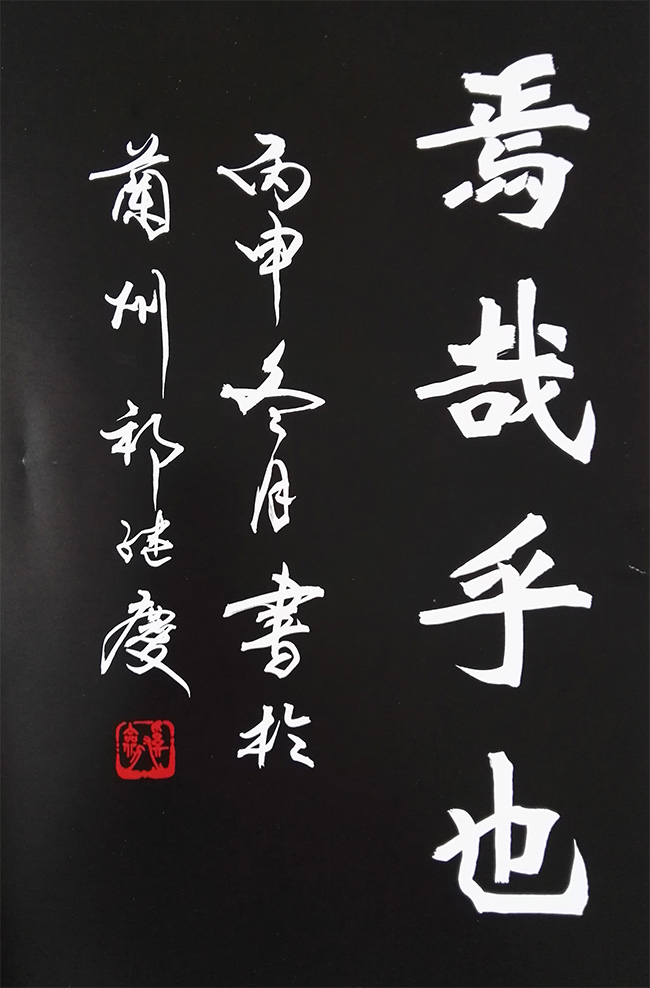 焉哉乎也
丙申冬月書於
蘭州祁继慶